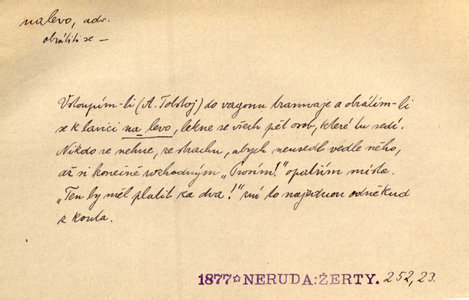 nalevo, adv.
obrátiti se –
Vstoupím-li (A. Tolstoj) do vagonu tramwaje a obrátím-li
se k lavici na levo, lekne se všech pět osob, které tu sedí.
Nikdo se nehne, ze strachu, abych neusedl vedle něho,
až si konečně rozhodným „Prosím!" opatřím místa.
„Ten by měl platit za dva!" zní to najednou odněkud
z kouta.
1877☆NERUDA:ŽERTY. 252,23.